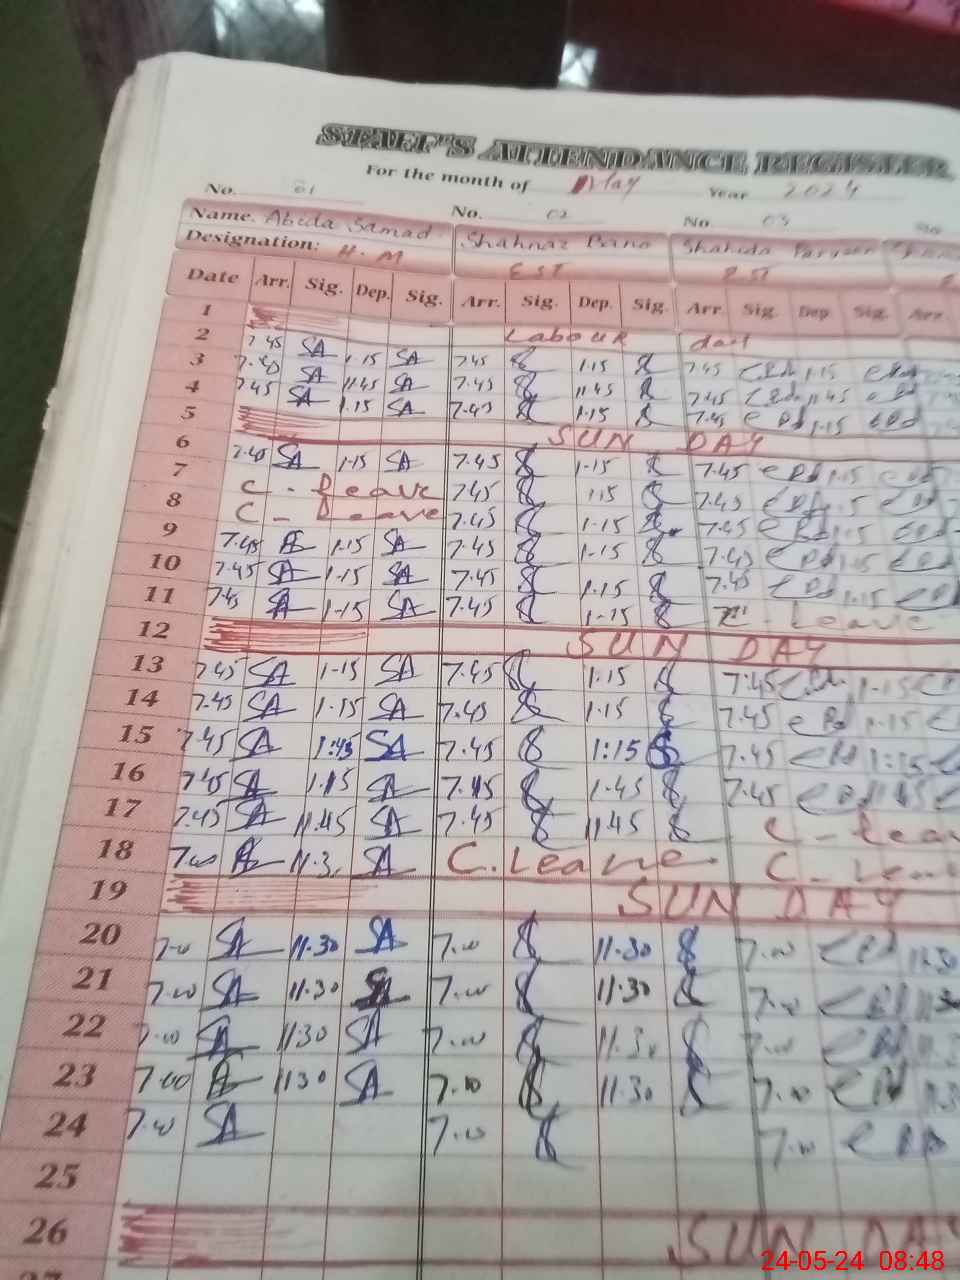 STAFF'S ATTENDANCE REGISTER
For the month of May Year 2024
No. 01 No. 02 No. 03 No
Name. Abida Samad Shahnaz Bano Shahida Parveen
Designation: H.M EST PST
Date Arr. Sig. Dep. Sig. Arr. Sig. Dep. Sig. Arr. Sig. Dep Sig. Arr.
1 Labour day
2 7.45 SA 1.15 SA 7.45 1.15 7.45 1.15
3 7.45 SA 11.45 SA 7.45 11.45 7.45 11.45
4 7.45 SA 1.15 SA 7.45 1.15 7.45 1.15
5 SUN DAY
6 7.45 SA 1.15 SA 7.45 1.15 7.45 1.15
7 C. Leave 7.45 1.15 7.45 1.15
8 C. Leave 7.45 1.15 7.45 1.15
9 7.45 1.15 SA 7.45 1.15 7.45 1.15
10 7.45 SA 1.15 SA 7.45 1.15 7.45 1.15
11 7.45 SA 1.15 SA 7.45 1.15 Leave
12 SUN DAY
13 7.45 SA 1.15 SA 7.45 1.15 7.45 1.15
14 7.45 SA 1.15 SA 7.45 1.15 7.45 1.15
15 7.45 SA 1:45 SA 7.45 1:15 7.45 1:15
16 7.45 SA 1.15 SA 7.45 1.45 7.45
17 7.45 SA 11.45 SA 7.45 11.45 C - Lea
18 7.00 11.3 SA C. Leave C - Lea
19 SUN DAY
20 7.00 SA 11.30 SA 7.00 11.30 7.00 11.30
21 7.00 SA 11.30 SA 7.00 11.30 7.00 11.3
22 7.00 SA 11.30 SA 7.00 11.30 7.00 11.3
23 7.00 11.30 SA 7.00 11.30 7.00 11.3
24 7.00 SA 7.00 7.00
25
26 SUN DAY
24-05-24 08:48